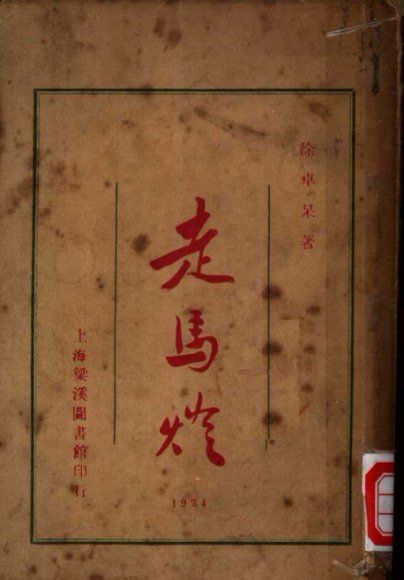 徐卓呆著
走馬燈
上海梁溪圖書館印行
1924.